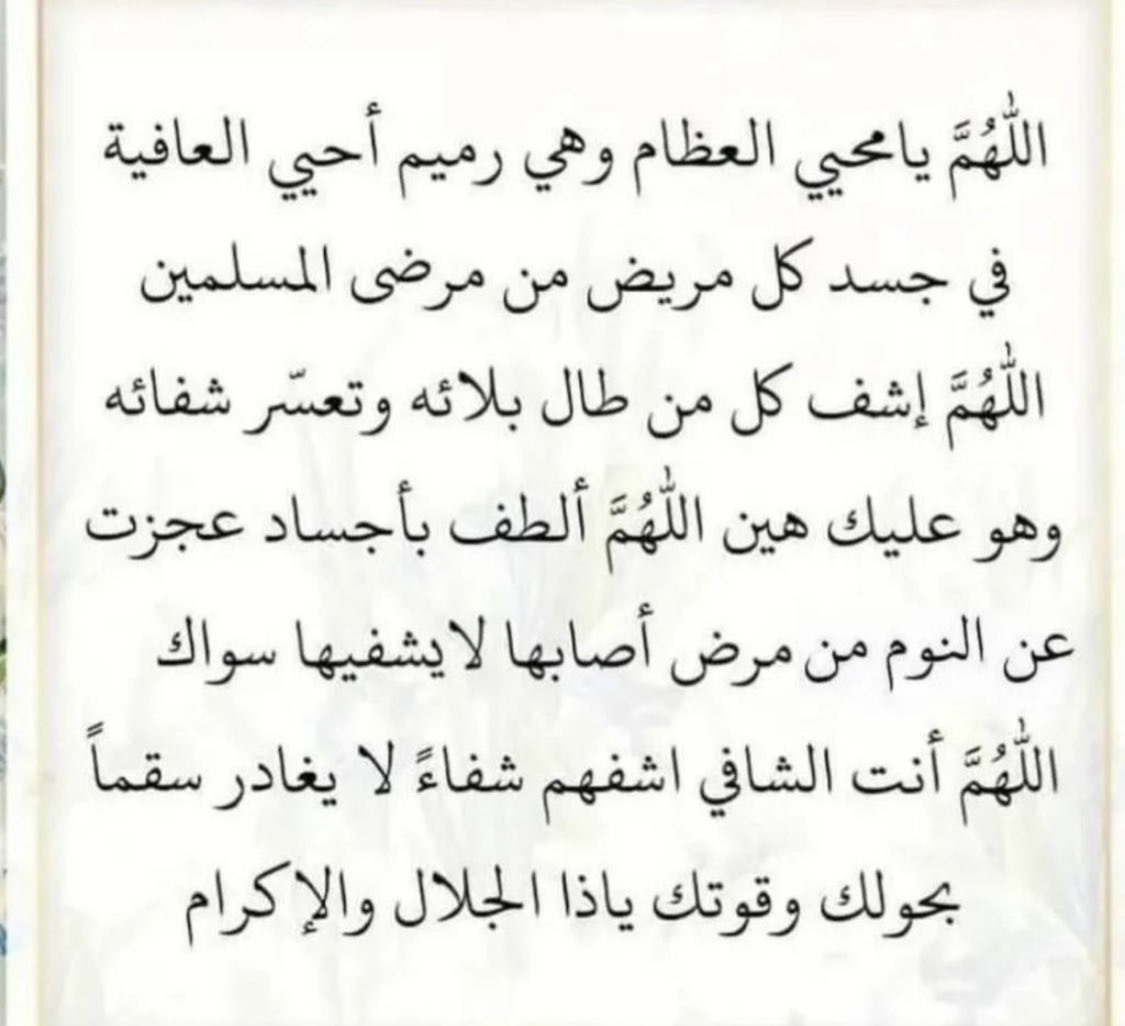 اللّٰهُمَّ يامحيي العظام وهي رميم أحيي العافية
في جسد كل مريض من مرضى المسلمين
اللّٰهُمَّ إشف كل من طال بلائه وتعسّر شفائه
وهو عليك هين اللّٰهُمَّ ألطف بأجساد عجزت
عن النوم من مرض أصابها لايشفيها سواك
اللّٰهُمَّ أنت الشافي اشفهم شفاءً لا يغادر سقماً
بحولك وقوتك ياذا الجلال والإكرام